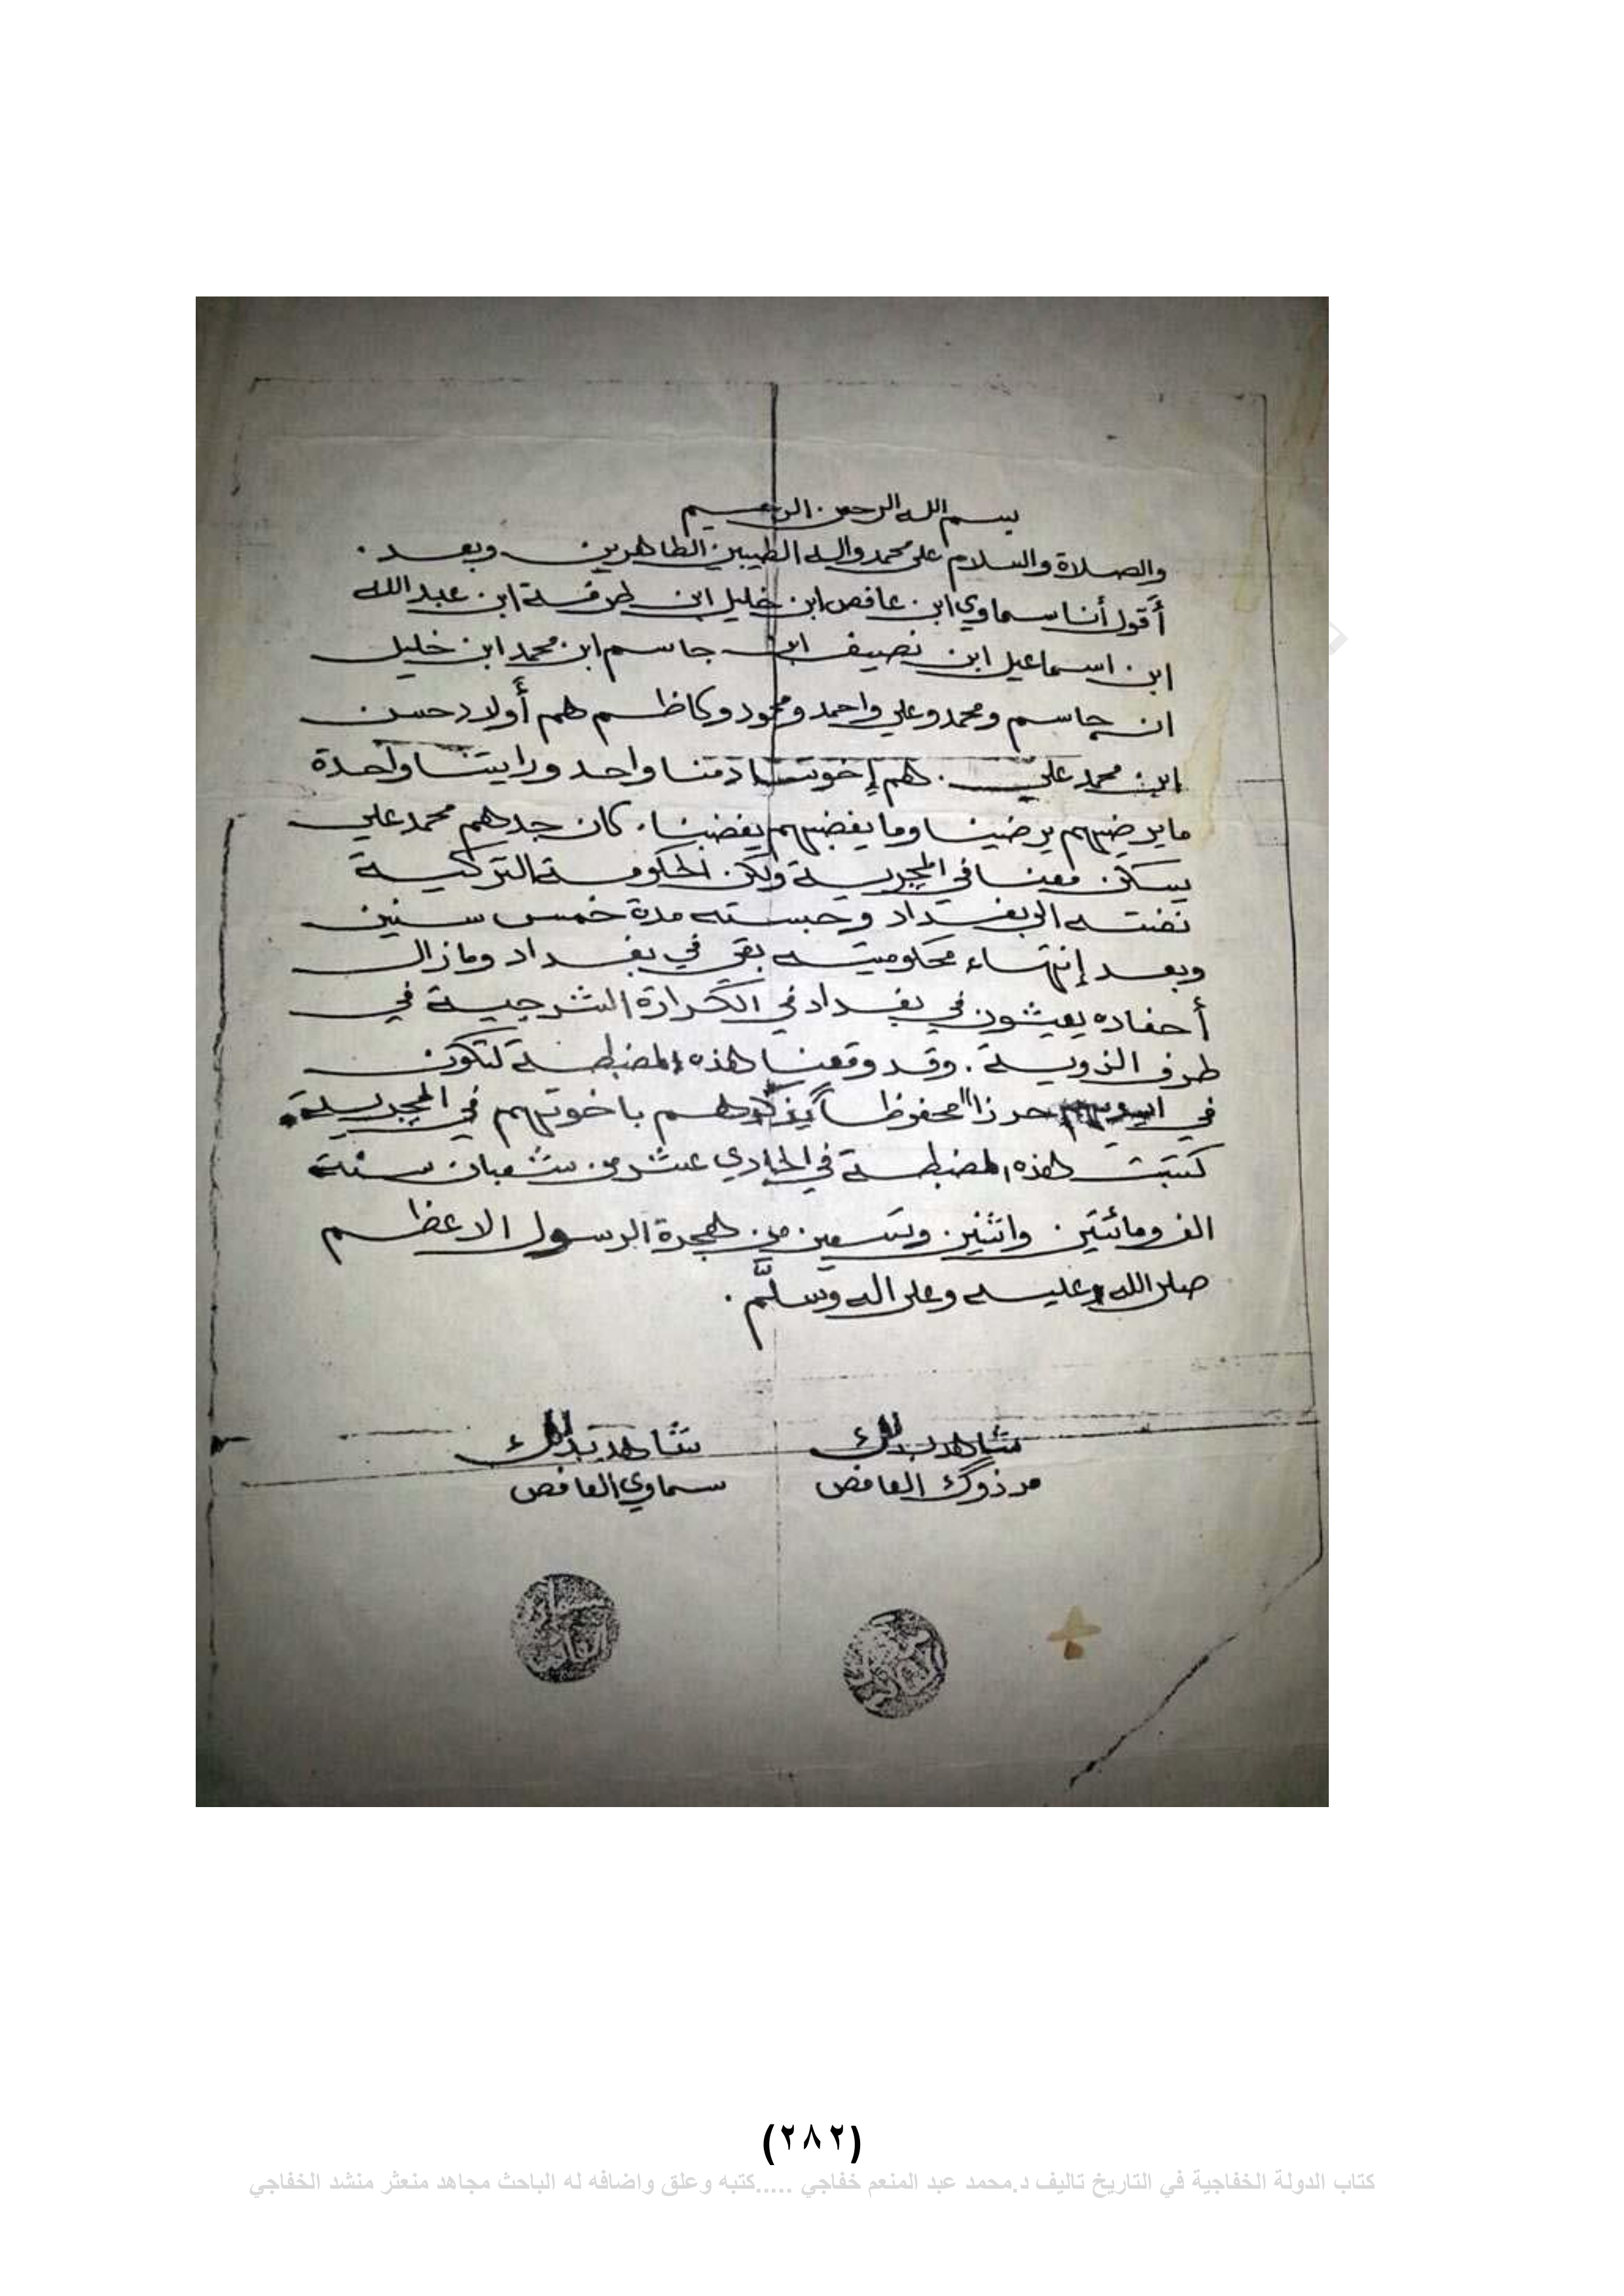 بسم الله الرحمن الرحيم
والصلاة والسلام على محمد واله الطيبين الطاهرين وبعد.
أقول أنا سماوي ابن عافص ابن خليل ابن طرفة ابن عبد الله
ابن اسماعيل ابن نصيف ابن جاسم ابن محمد ابن خليل
ان جاسم ومحمد وعلي واحمد ومحمود وكاظم هم أولاد حسن
ابن محمد علي . هم إخوتنا دمنا واحد ورايتنا واحدة
مايرضيهم يرضينا وما يغضبهم يغضبنا. كان جدهم محمد علي
يسكن معنا في المجريـة ولكن الحكومة التركية
نفته الى بغداد وحبسته مدة خمس سنين
وبعد إنتهاء محكوميته بقي في بغداد ومازال
أحفاده يعيشون في بغداد في الكرادة الشرجية في
طرف الزوية . وقد وقعنا هذه المضبطة لتكون
في حرزا محفوظاً يذكرهم باخوتهم في المجرية.
كتبت هذه المضبطة في الحادي عشر من شعبان سنة
الف ومائتين واثنين وتسعين من هجرة الرسول الاعظم
صلى الله عليه وعلى اله وسلَّم .
شاهد بذلك شاهد بذلك
مرزوگ العافص سماوي العافص
(٢٨٢)
كتاب الدولة الخفاجية في التاريخ تاليف د.محمد عبد المنعم خفاجي .....كتبه وعلق واضافه له الباحث مجاهد منعثر منشد الخفاجي